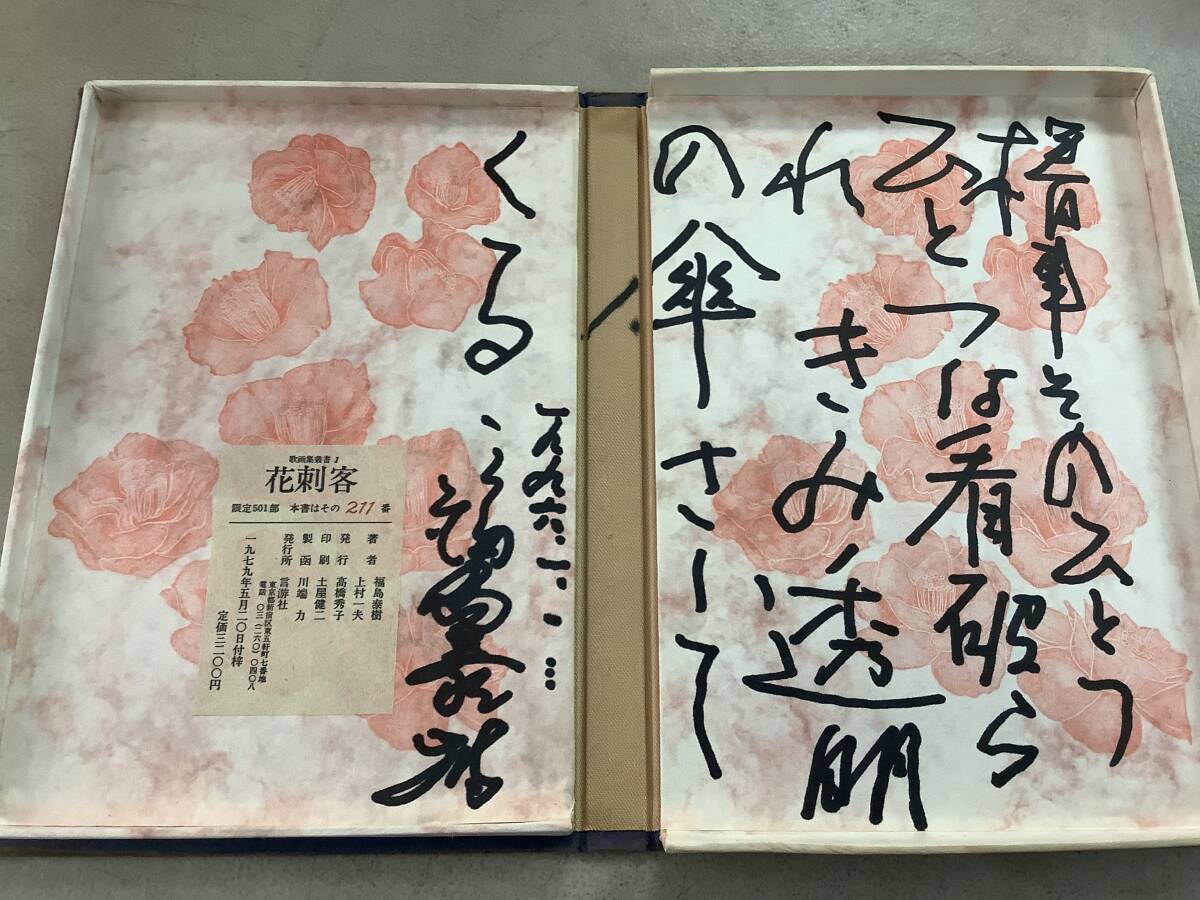 椿事そのひとつ
ひとつは看破ら
れ きみ透明
の傘さして
くる
一九九六
福島泰樹
歌画集叢書 1
花刺客
限定501部 本書はその 211 番
著者 福島泰樹
上村一夫
発行 高橋秀子
印刷 土屋健二
製函 川端 力
発行所 言游社
東京都新宿区東五軒町七番地
電話 〇三(二六〇)〇四〇八
一九七九年五月二〇日付梓
定価三二〇〇円